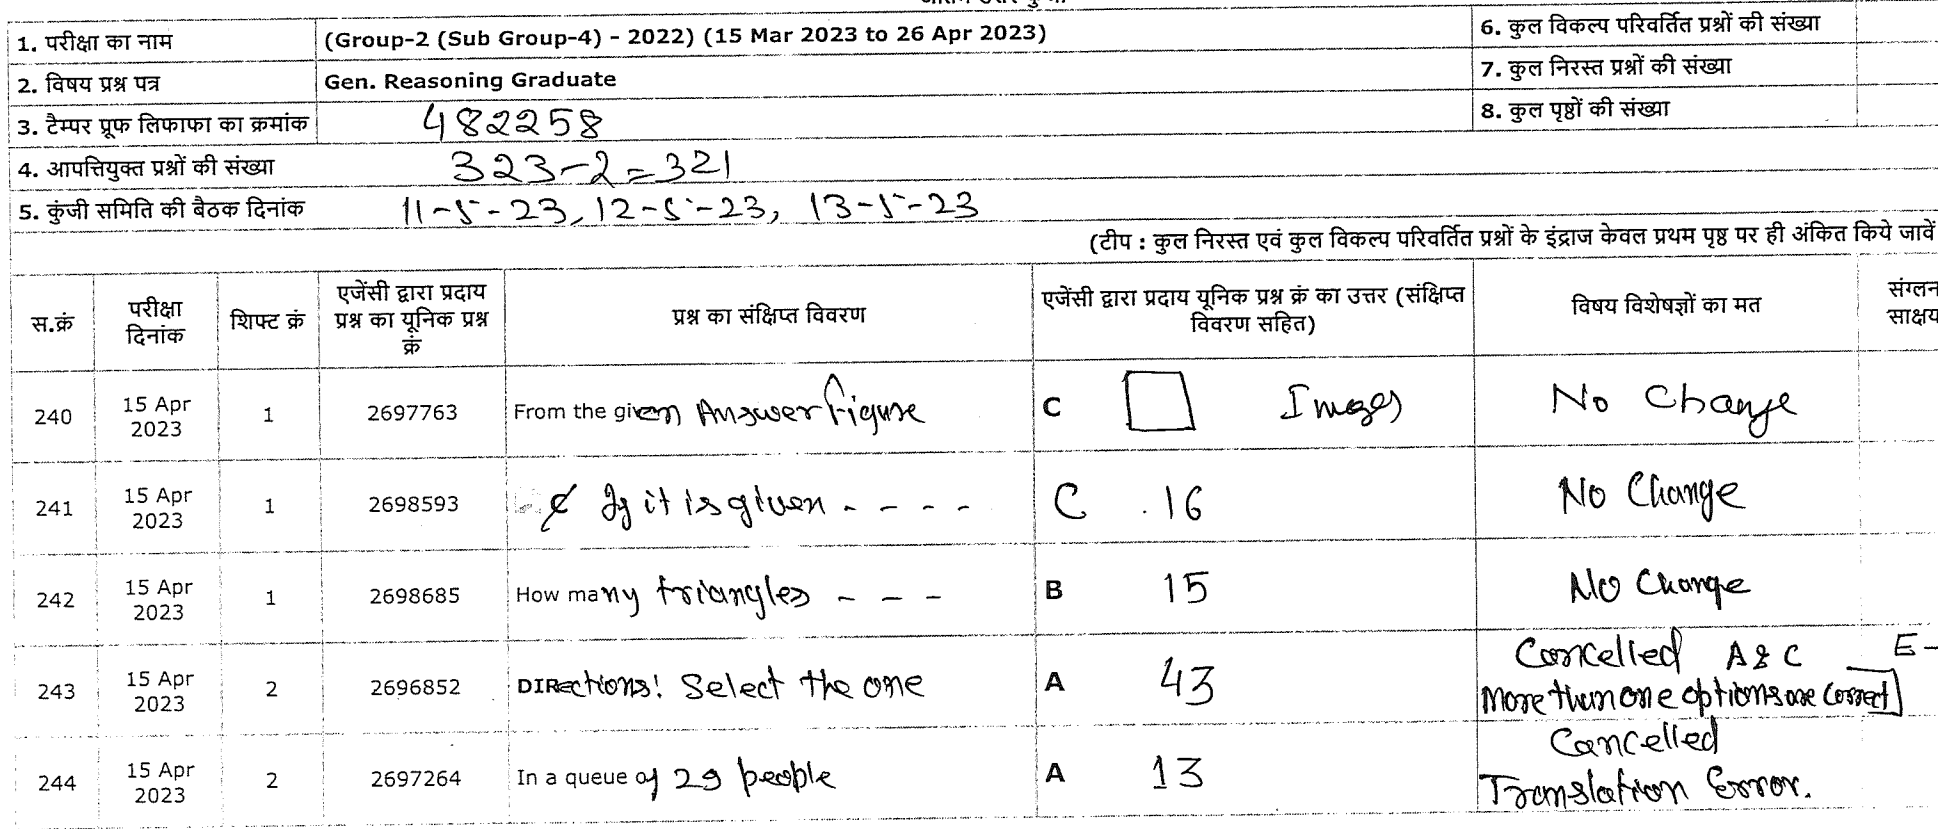 1. परीक्षा का नाम (Group-2 (Sub Group-4) - 2022) (15 Mar 2023 to 26 Apr 2023) 6. कुल विकल्प परिवर्तित प्रश्नों की संख्या
2. विषय प्रश्न पत्र Gen. Reasoning Graduate 7. कुल निरस्त प्रश्नों की संख्या
3. टैम्पर प्रूफ लिफाफा का क्रमांक 482258 8. कुल पृष्ठों की संख्या
4. आपत्तियुक्त प्रश्नों की संख्या 323-2=321
5. कुंजी समिति की बैठक दिनांक 11-5-23, 12-5-23, 13-5-23
(टीप : कुल निरस्त एवं कुल विकल्प परिवर्तित प्रश्नों के इंद्राज केवल प्रथम पृष्ठ पर ही अंकित किये जावें
स.क्रं
परीक्षा
दिनांक
शिफ्ट क्रं
एजेंसी द्वारा प्रदाय
प्रश्न का यूनिक प्रश्न
क्रं
प्रश्न का संक्षिप्त विवरण
एजेंसी द्वारा प्रदाय यूनिक प्रश्न क्रं का उत्तर (संक्षिप्त
विवरण सहित)
विषय विशेषज्ञों का मत
संग्लन
साक्षय
240
15 Apr
2023
1
2697763
From the given Answer Figure
C
Images
No Change
241
15 Apr
2023
1
2698593
If it is given - - - -
C
16
No Change
242
15 Apr
2023
1
2698685
How many triangles - - -
B
15
No Change
243
15 Apr
2023
2
2696852
DIRections: Select the one
A
43
Cancelled A & C
More than one options are correct]
E-
244
15 Apr
2023
2
2697264
In a queue of 29 people
A
13
Cancelled
Translation Error.